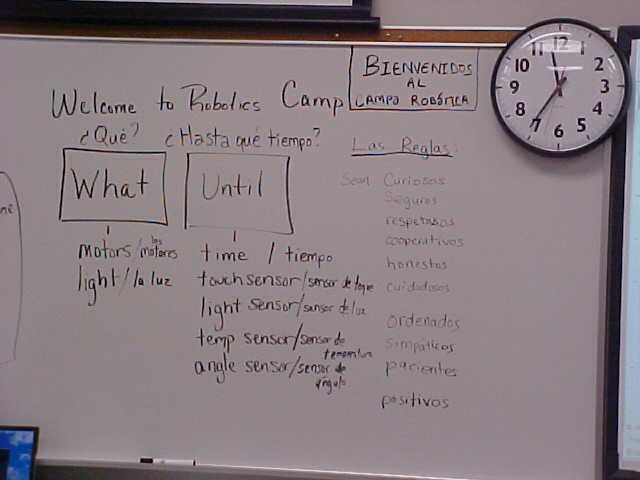 BIENVENIDOS
AL
CAMPO ROBÓTICA
Welcome to Robotics Camp
¿Qué?
¿Hasta qué tiempo?
What
Until
motors/los motores
light/la luz
time / tiempo
touch sensor/sensor de toque
light sensor/sensor de luz
temp sensor/sensor de temperatura
angle sensor/sensor de ángulo
Las Reglas:
Sean Curiosos
Seguros
respetosos
cooperativos
honestos
cuidadosos
ordenados
simpáticos
pacientes
positivos
12
1
2
3
4
5
6
7
8
9
10
11